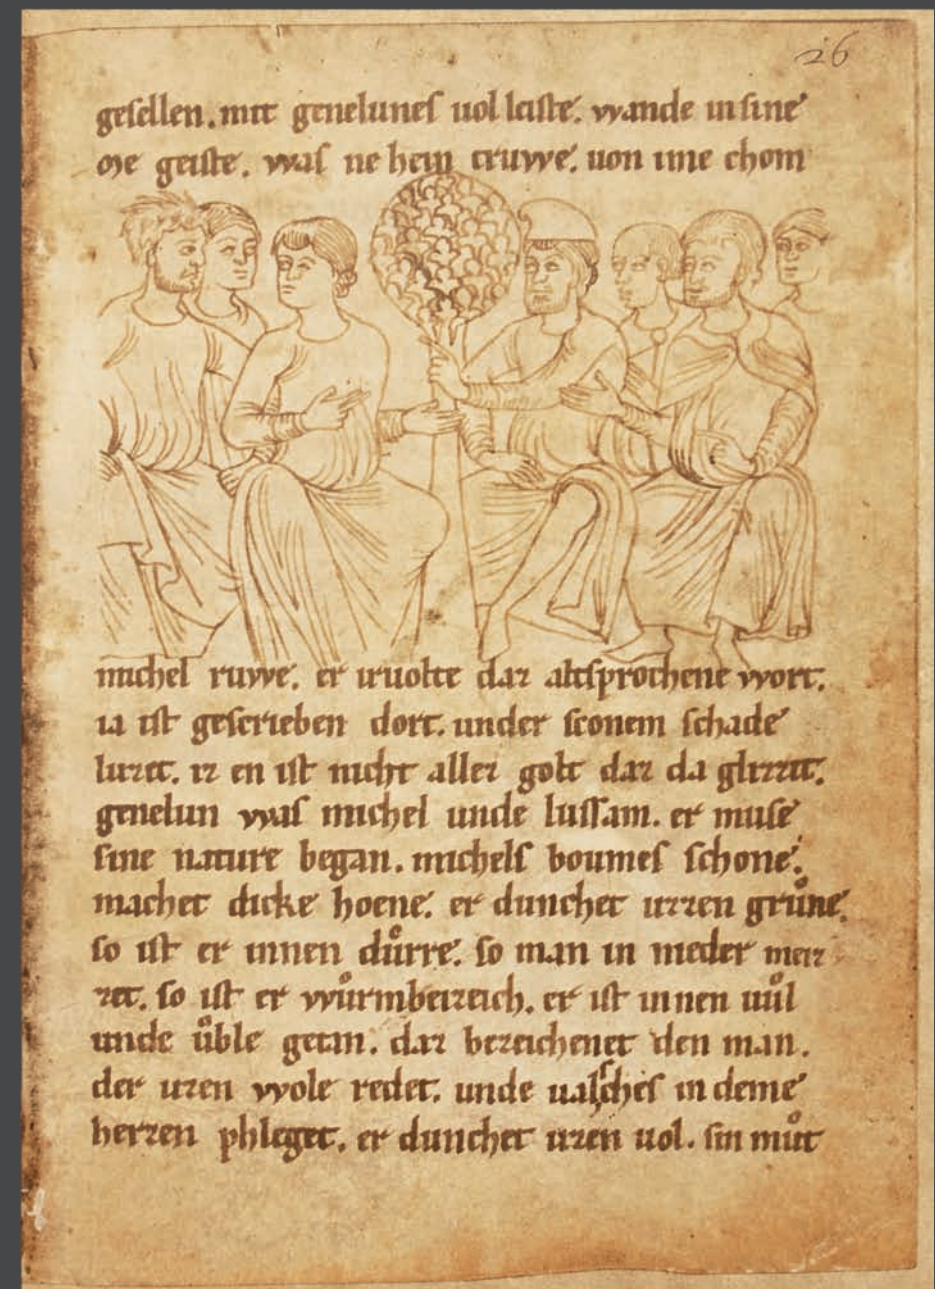 26
geſellen. mit genelunes uolleiste. wande in sine
me geiste. was ne hein truwe. uon ime chom
michel ruwe. er iruolte daz altsprochene wort.
ia ist gescrieben dort. under sconem schade
luzet. iz en ist nicht allez golt daz da glizzet.
genelun was michel unde lussam. er muse
sine nature began. michels boumes schone.
machet dicke hoene. er dunchet uzzen grůne.
so ist er innen důrre. so man in nieder meiz
zet. so ist er wůrmbeizeich. er ist innen uůl
unde ůble getan. daz bezeichenet den man.
der uzen wole redet. unde ualsches in deme
herzen phleget. er dunchet uzen uol. sin můt